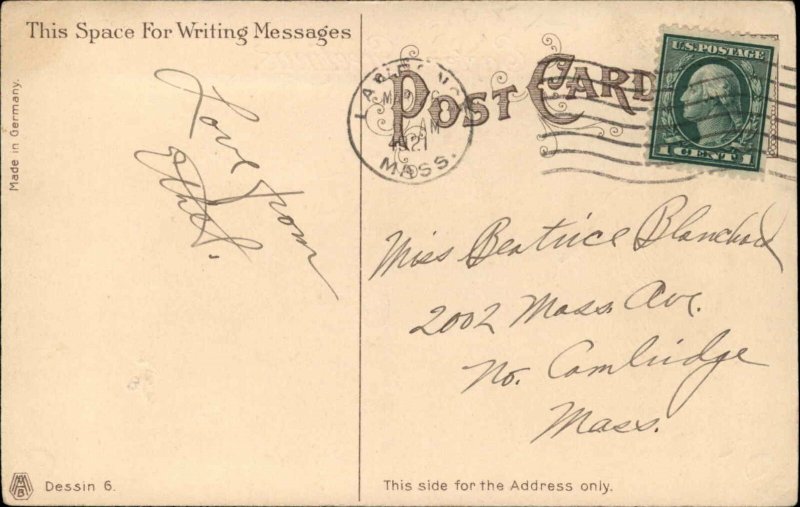 This Space For Writing Messages
Made in Germany.
Love from
Ethel.
Dessin 6.
POST CARD
MASS.
U.S. POSTAGE
1 CENT 1
AM
1921
Miss Beatrice Blanchard
2002 Mass. Ave.
No. Cambridge
Mass.
This side for the Address only.